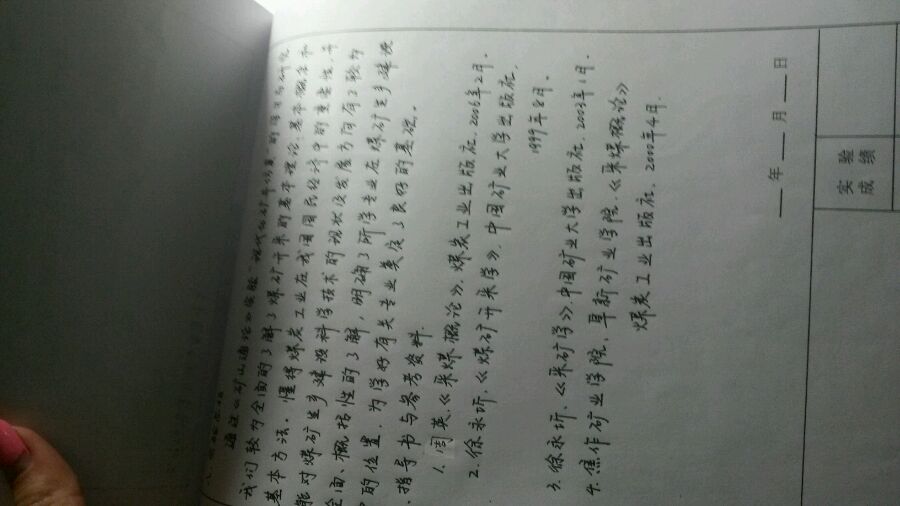 通过《矿山通论》实验"现代化矿井仿真"的学习和研究
我们较为全面的了解了煤矿开采的基本理论、基本概念和
基本方法。懂得煤炭工业在我国国民经济中的重要性,并
能对煤矿生产建设科学技术的现状及发展方向有了较为
全面、概括性的了解,明确了所学专业在煤矿生产建设
中的位置,为学好有关专业奠定了良好的基础。
、指导书与参考资料
1. 周英、《采煤概论》. 煤炭工业出版社. 2006年2月.
2. 徐永圻、《煤矿开采学》. 中国矿业大学出版社.
1999年8月.
3. 徐永圻、《采矿学》. 中国矿业大学出版社. 2003年1月.
4. 焦作矿业学院、阜新矿业学院.《采煤概论》
煤炭工业出版社. 2000年4月.
年 月 日
实验
成绩